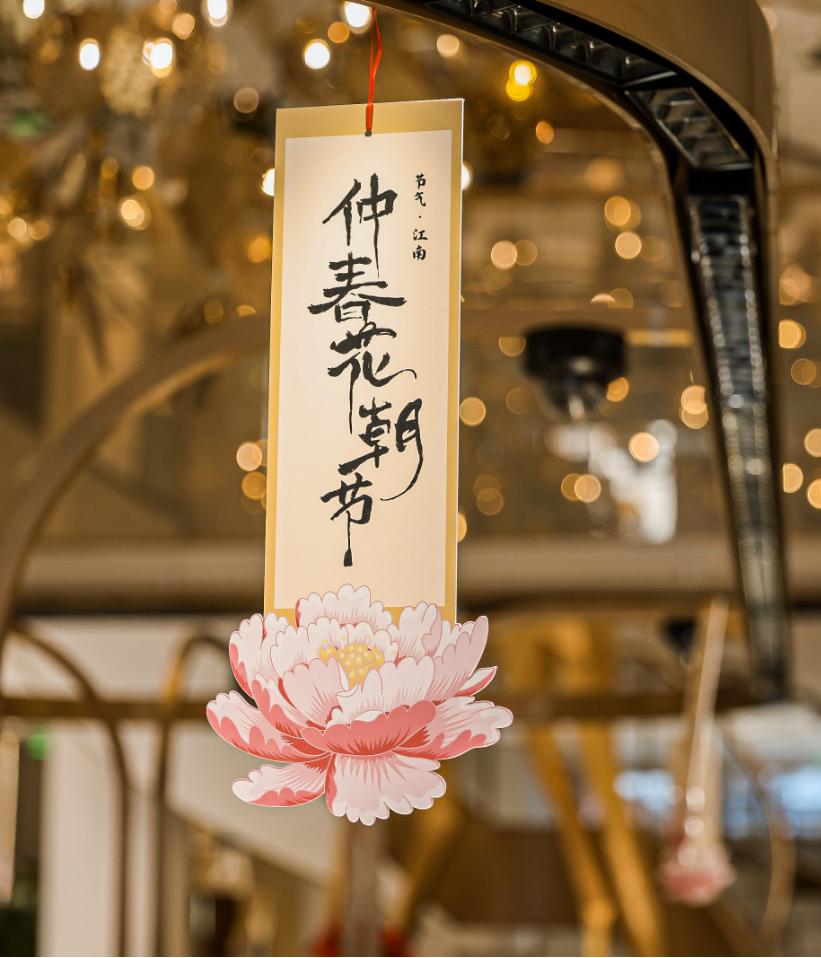 节气·江南
仲春花朝节